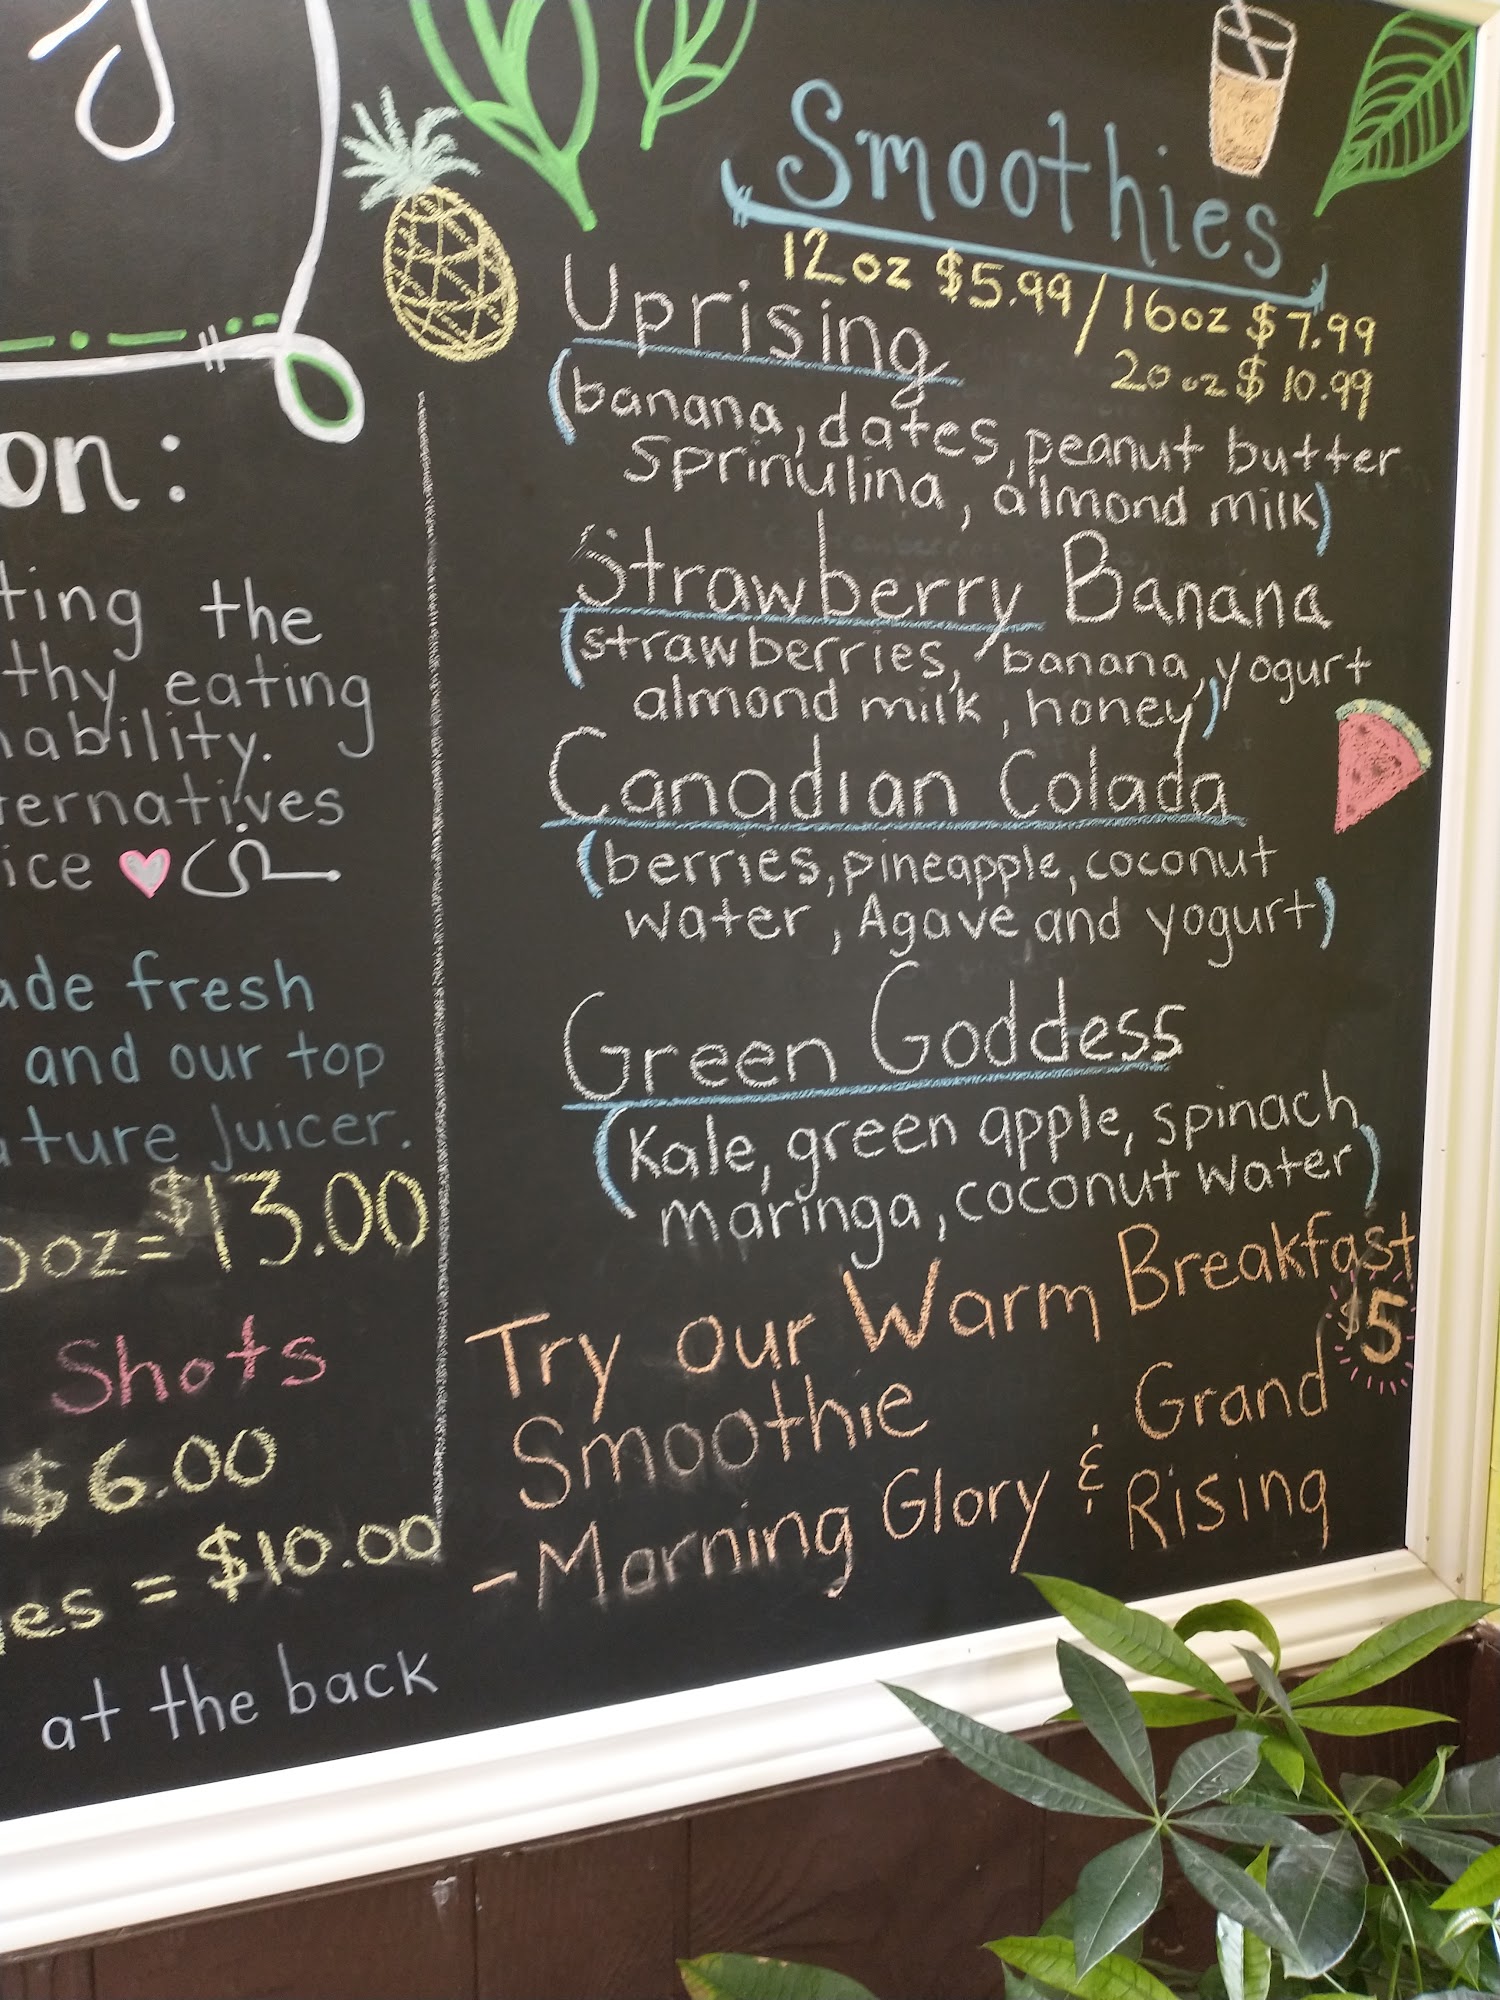 on:
ting the
thy eating
ability.
ernatives
ice
ade fresh
and our top
ature juicer.
0oz = $13.00
Shots
$6.00
es = $10.00
at the back
Smoothies
12oz $5.99 / 16oz $7.99
20oz $10.99
Uprising
(banana, dates, peanut butter
Sprinulina, almond milk)
Strawberry Banana
(strawberries, banana, yogurt
almond milk, honey)
Canadian Colada
(berries, pineapple, coconut
water, Agave and yogurt)
Green Goddess
(Kale, green apple, spinach,
maringa, coconut water)
Try our Warm Breakfast
Smoothie $5
-Morning Glory & Grand
Rising